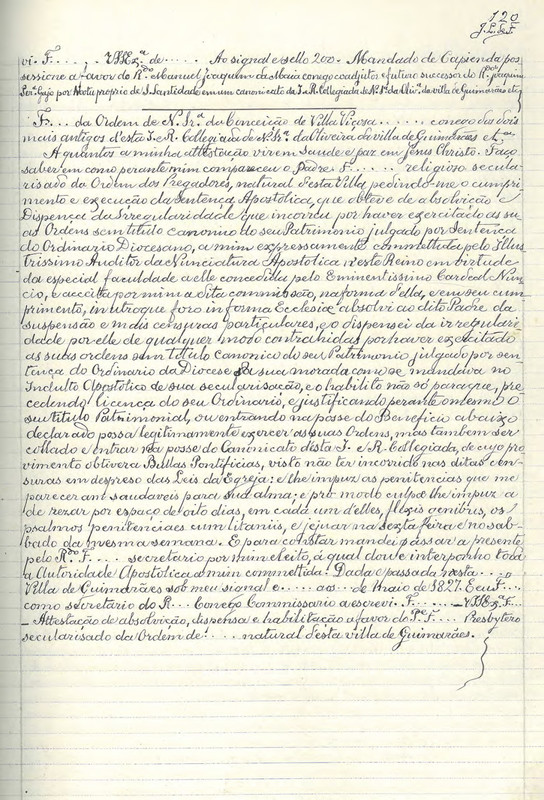 120
vi. F. . . . , VSSEx.ª de . . . . . Ao signal e sello 200. Mandado de Capienda pos
sessione a favor do R.do Manuel Joaquim da Maia conego coadjutor e futuro successor do R.do Joaquim
por Motu proprio de S. Santidade em um canonicato da I. e R. Collegiada de N. Sr.ª da Oliv.ª da villa de Guimarães etc
F. . . . da Ordem de N. Sr.ª da Conceição de Villa Viçosa . . . . . . conego dos dois
mais antigos d'esta I. e R. Collegiada de N. Sr.ª da Oliveira da villa de Guimarães etc.
A quantos a minha attestação virem saude e paz em Jesus Christo. Faço
saber em como perante mim compareceu o Padre F. . . . . religioso secula-
risado da Ordem dos Pregadores, natural d'esta Villa, pedindo-me o cumpri
mento e execução da Sentença Apostolica, que obteve de absolvição e
Dispença da Irregularidade que incorreu por haver exercitado as su
as Ordens sem titulo canonico do seu Patrimonio julgado por Sentença
do Ordinario Diocesano, a mim expressamente commettida pelo Illus
trissimo Auditor da Nunciatura Apostolica n'este Reino em virtude
da especial faculdade a elle concedida pelo Eminentissimo Cardeal Nun-
cio, e acceita por mim a dita commissão, na forma d'ella, e em seu cum
primento, in utroque foro in forma Ecclesiæ absolvi ao dito Padre da
suspensão e mais censuras particulares, e o dispensei da irregulari
dade por elle de qualquer modo contrahidas por haver exercitado
as suas ordens sem titulo canonico do seu Patrimonio julgado por sen-
tença do Ordinario da Diocese da sua morada como se mandava no
Indulto Apostolico de sua secularisação, e o habilito não só para que, pre
cedendo licença do seu Ordinario, e justificando perante o mesmo o
seu titulo Patrimonial, ou entrando na posse do Beneficio abaixo
declarado possa legitimamente exercer as suas Ordens, mas tambem ser
collado e entrar na posse do Canonicato d'esta I. e R. Collegiada, de cujo pro
vimento obtivera Bullas Pontificias, visto não ter incorrido nas ditas cen-
suras em despreso das Leis da Egreja: e lhe impuz as penitencias que me
pareceram saudaveis para sua alma: e pro modo culpæ lhe impuz a
de rezar por espaço de oito dias, em cada um d'elles, flexis genibus, os
psalmos penitenciaes cum litaniis, e jejuar na sexta feira e no sab-
bado da mesma semana. E para constar mandei passar a presente
pelo R.do F. . . . . secretario por mim eleito, á qual dou e interponho toda
a Autoridade Apostolica a mim commettida. Dada e passada n'esta . . . .
Villa de Guimarães sob meu signal e . . . . . aos . . . de Maio de 1827. E eu F. . . .
como secretario do R. . . . Conego Commissario a escrevi. F. . . . . . . — VSSEx.ª F. . .
— Attestação de absolvição, dispensa e habilitação a favor do P.e F. . . . . Presbytero
secularisado da Ordem de . . . . . natural d'esta villa de Guimarães.